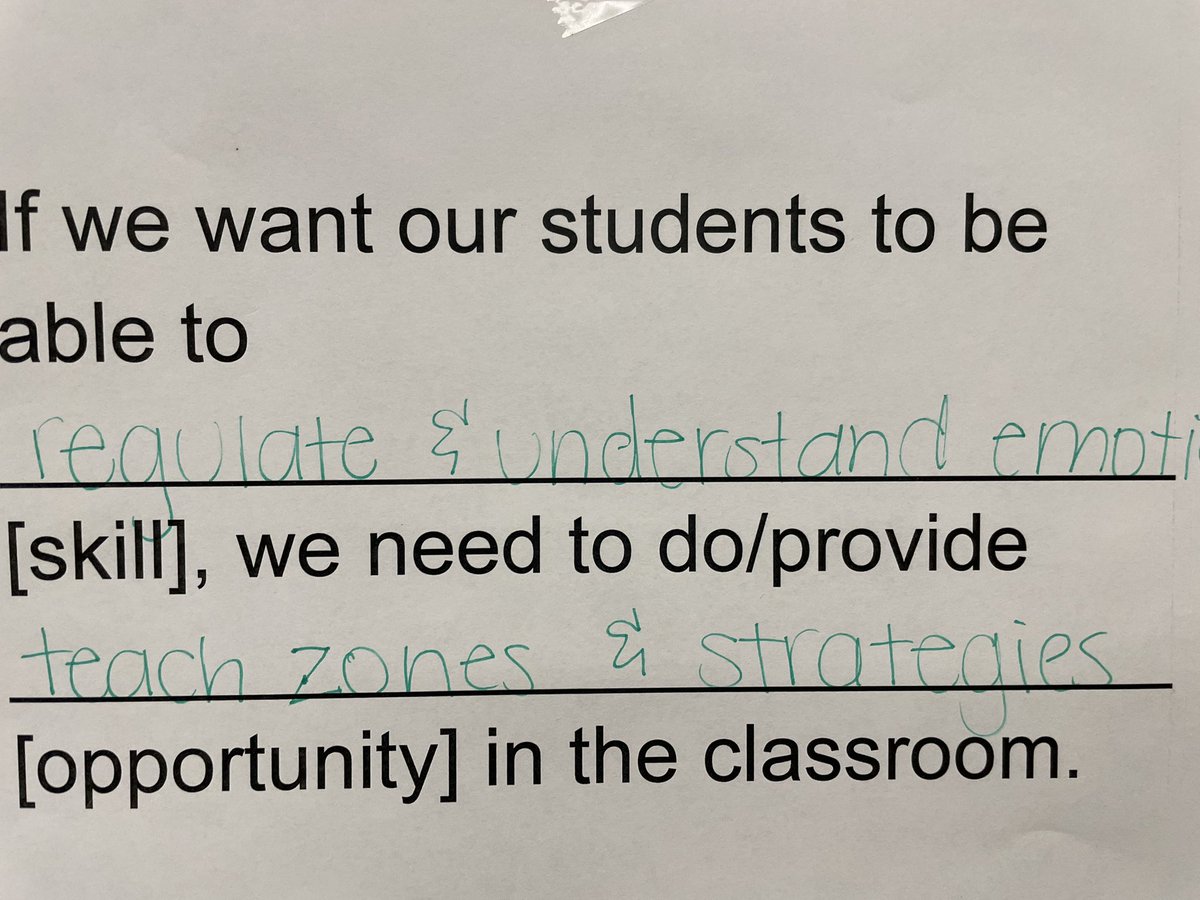 If we want our students to be
able to
regulate & understand emoti
[skill], we need to do/provide
teach zones & strategies
[opportunity] in the classroom.